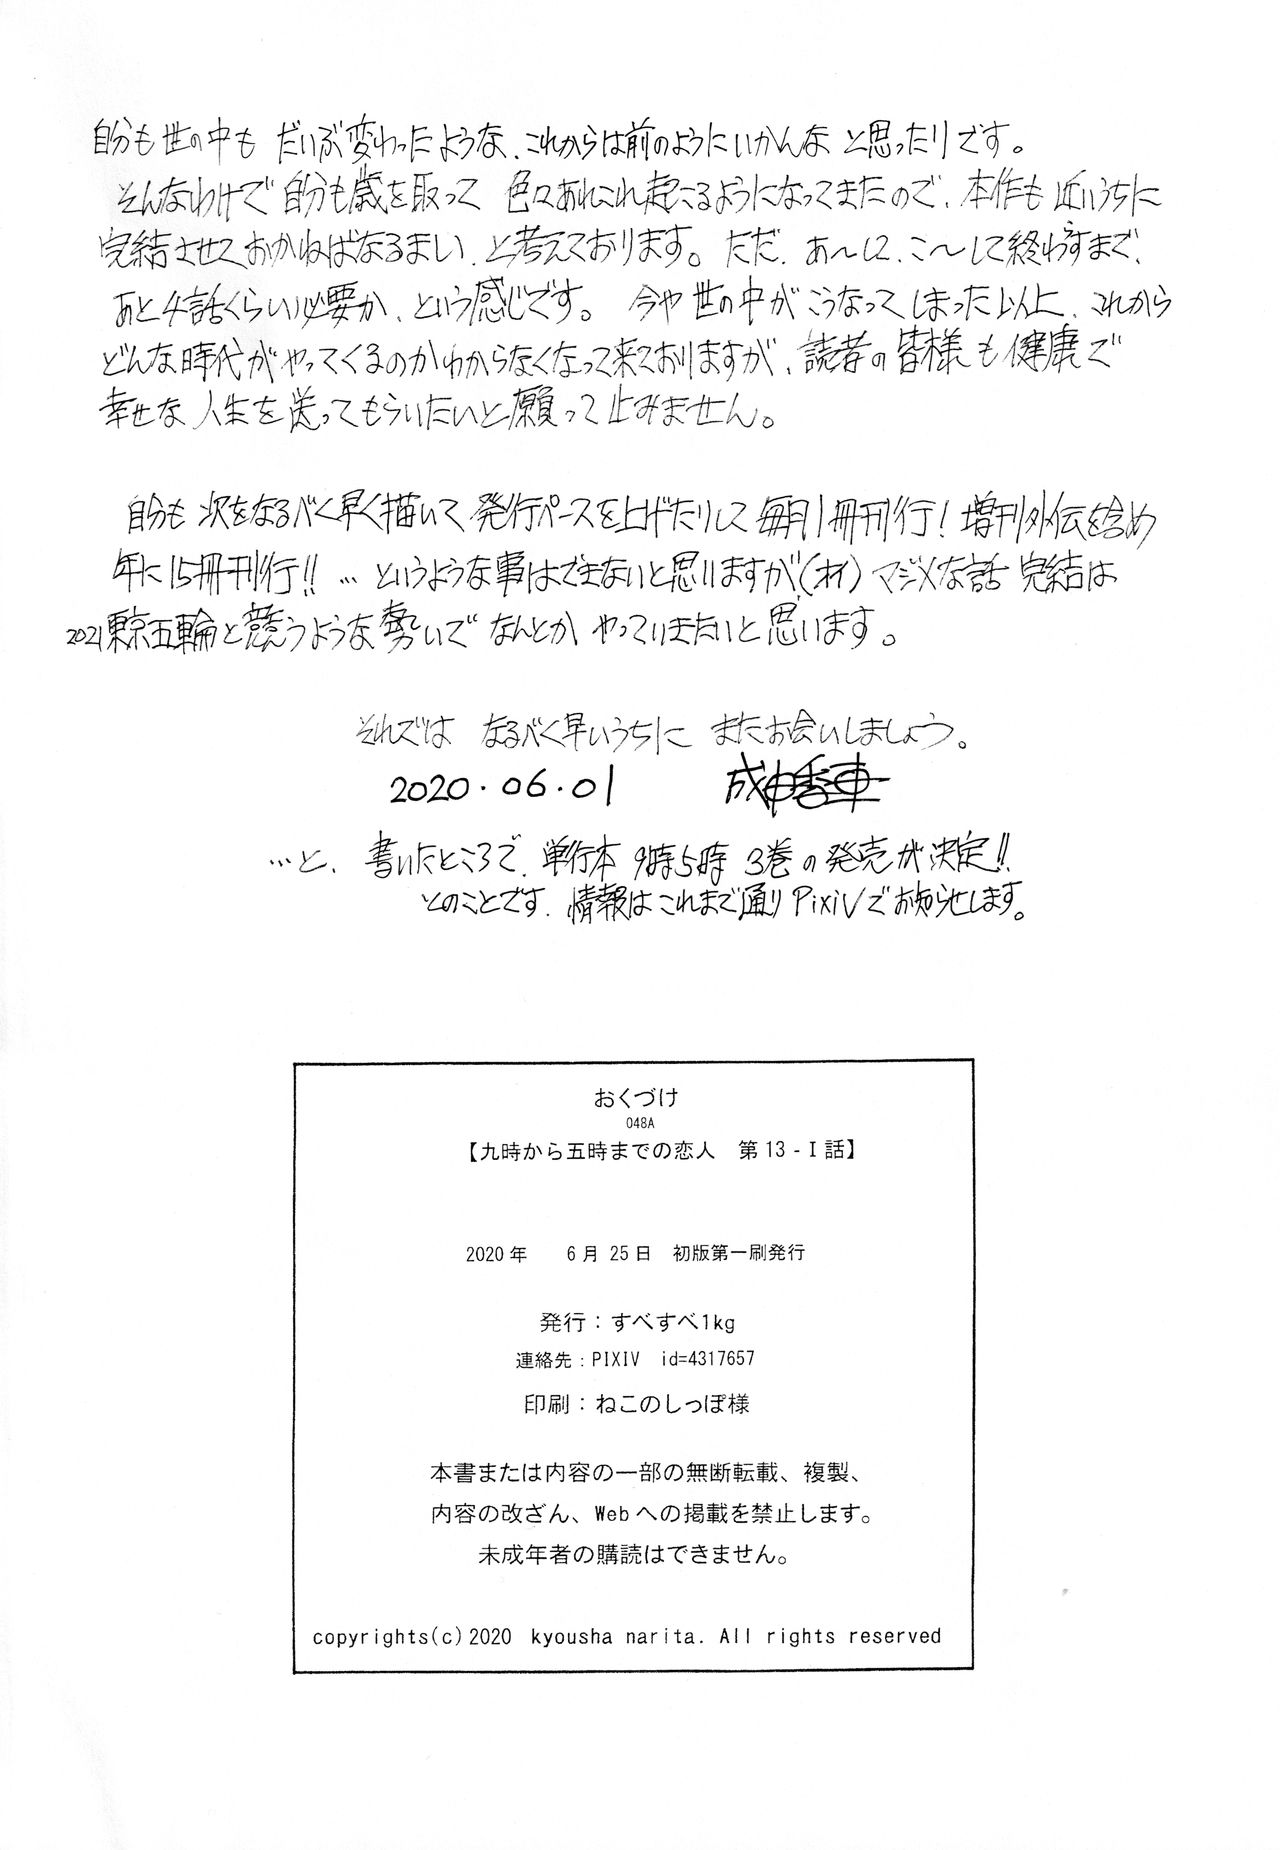 自分も世の中も だいぶ変わったような、これからは前のようにいかんな と思ったりです。
そんなわけで自分も歳を取って 色々あれこれ起こるようになってきたので、本作も近いうちに
完結させておかねばなるまい、と考えております。ただ、あ〜して、こ〜して終わすまで、
あと4話くらい必要か、という感じです。 今や世の中がこうなってしまった以上、これから
どんな時代がやってくるのかわからなくなって来ておりますが、読者の皆様も健康で
幸せな人生を送ってもらいたいと願って止みません。
自分も次をなるべく早く描いて、発行ペースを上げたりして毎月1冊刊行! 増刊外伝を含め
年に15冊刊行!! …というような事はできないと思いますが(オイ)マジメな話 完結は
2021東京五輪と競うような勢いで なんとか やっていきたいと思います。
それでは なるべく早いうちに またお会いしましょう。
2020.06.01 成田香車
…と、書いたところで、単行本 9時5時 3巻の発売が決定!!
とのことです、情報はこれまで通り PixiVでお知らせします。
おくづけ
048A
【九時から五時までの恋人 第13-I話】
2020年 6月25日 初版第一刷発行
発行:すべすべ1kg
連絡先:PIXIV id=4317657
印刷:ねこのしっぽ様
本書または内容の一部の無断転載、複製、
内容の改ざん、Webへの掲載を禁止します。
未成年者の購読はできません。
copyrights(c)2020 kyousha narita. All rights reserved